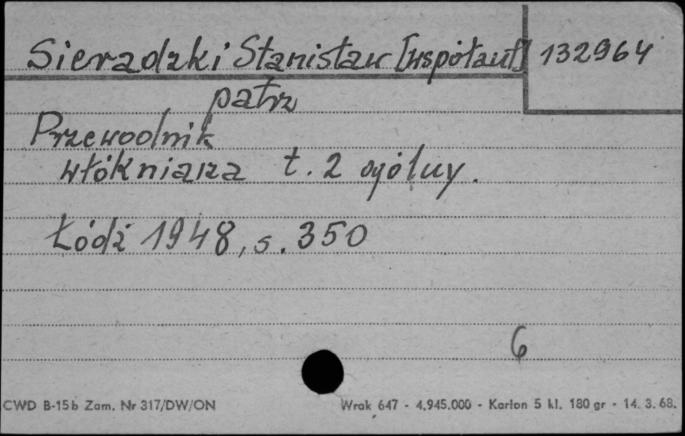 Sieradzki Stanisław [współaut] 132964
patrz
Przewodnik
włókniarza t. 2 ogólny.
Łódź 1948, s. 350
6
CWD B-15b Zam. Nr 317/DW/ON Wrak 647 - 4.945.000 - Karton 5 kl. 180 gr - 14. 3. 68.